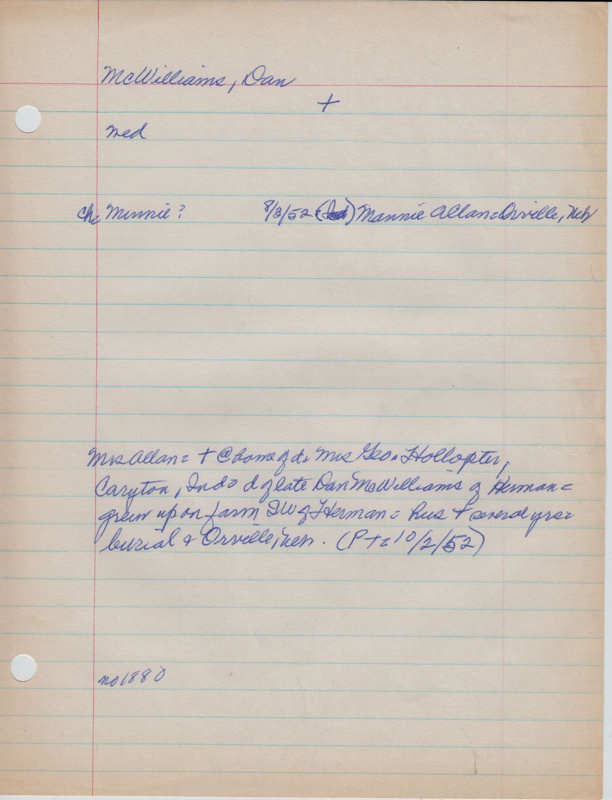 McWilliams, Dan
+
med
ch Minnie? 8/3/52 Mannie Allan = Orville, Neb
Mrs Allan = + @ home of d. Mrs Geo. Hollopter,
Caryton, Ind = d of late Dan McWilliams of Herman =
grew up on farm SW of Herman = hus + several yrs =
burial @ Orville, Neb. (P+ = 10/2/52)
no 1880